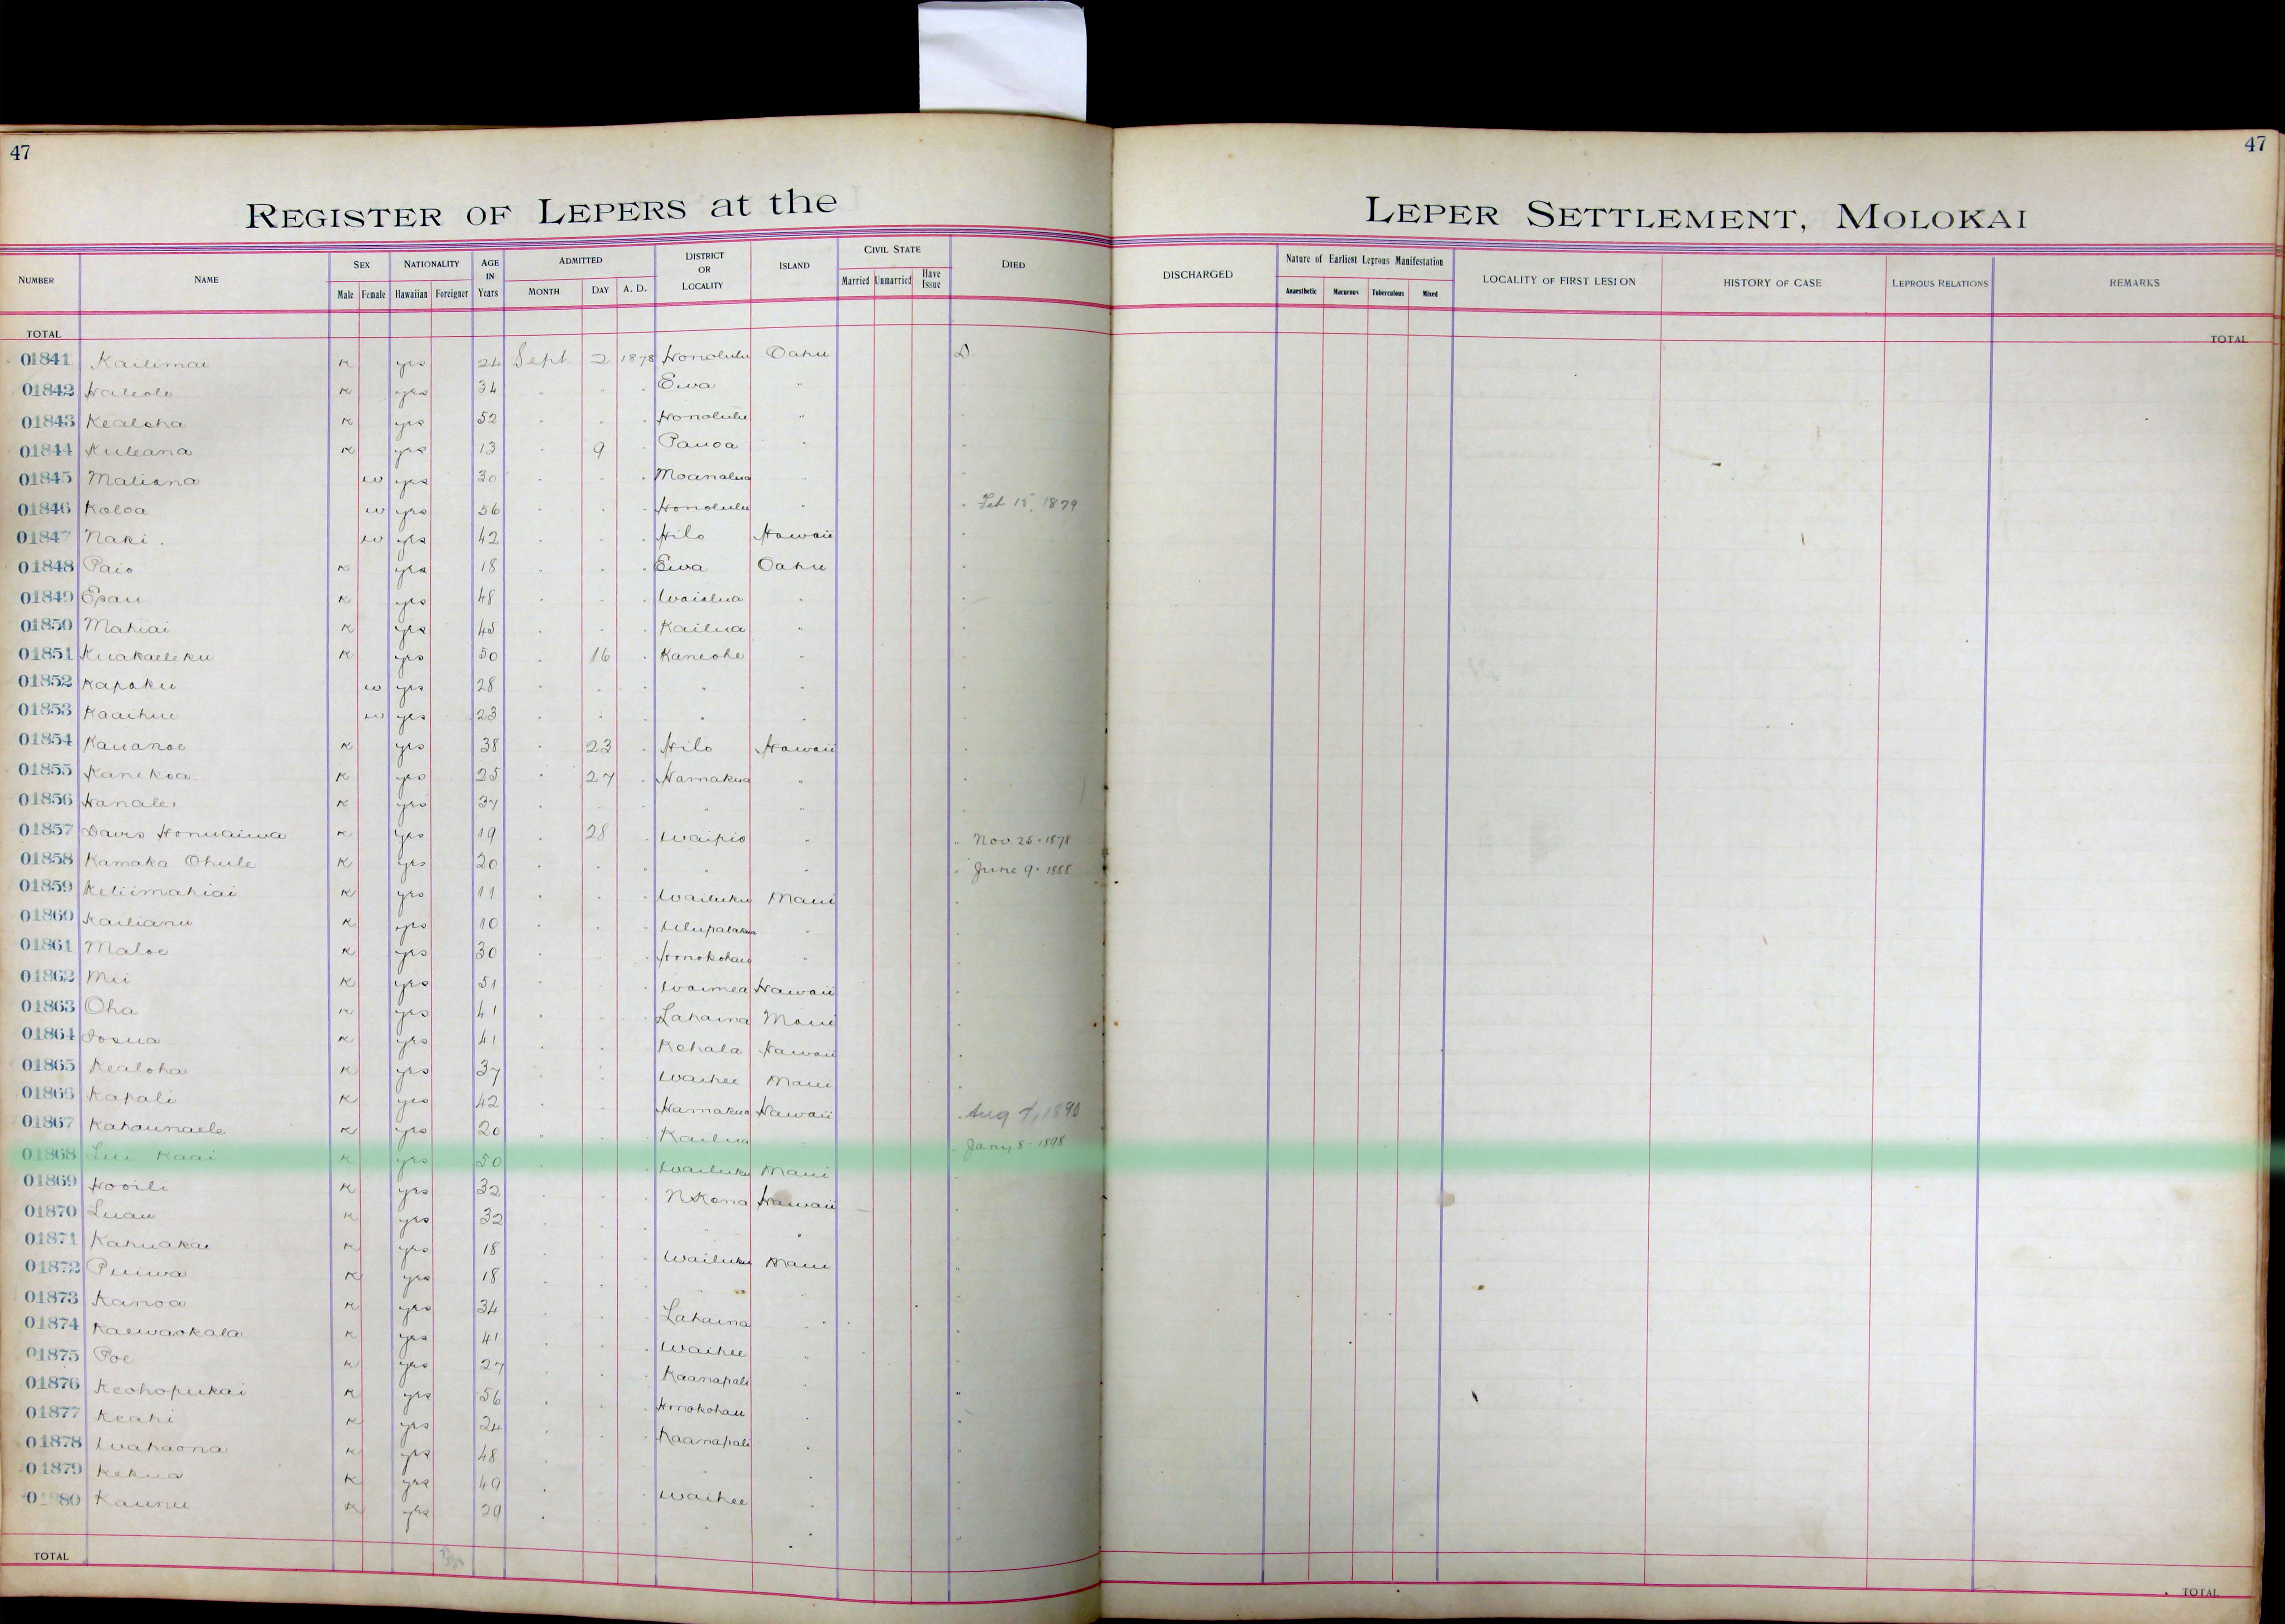 47
47
REGISTER OF LEPERS at the LEPER SETTLEMENT, MOLOKAI
NUMBER NAME SEX NATIONALITY AGE IN Years ADMITTED DISTRICT OR LOCALITY ISLAND CIVIL STATE DIED DISCHARGED Nature of Earliest Leprous Manifestation LOCALITY OF FIRST LESION HISTORY OF CASE LEPROUS RELATIONS REMARKS
Male Female Hawaiian Foreigner MONTH DAY A. D. Married Unmarried Have Issue Anaesthetic Macurous Tuberculous Mixed
TOTAL TOTAL
01841 Kailimai K yes 24 Sept 2 1878 Honolulu Oahu D
01842 Haleolo K yes 34 " " " Ewa "
01843 Kealoha K yes 52 " " " Honolulu "
01844 Kuleana K yes 13 " 9 " Pauoa " "
01845 Maliana w yes 30 " " " Moanalua " "
01846 Koloa w yes 56 " " " Honolulu " " Feb 15, 1879
01847 Naki w yes 42 " " " Hilo Hawaii "
01848 Paio K yes 18 " " " Ewa Oahu "
01849 Epau K yes 48 " " " Waialua " "
01850 Mahiai K yes 45 " " " Kailua " "
01851 Kuakaeleku K yes 50 " 16 " Kaneohe " "
01852 Kapoku w yes 28 " " " " "
01853 Kaaihue w yes 23 " " " " "
01854 Kauanoe K yes 38 " 23 " Hilo Hawaii "
01855 Kanekoa K yes 25 " 27 " Hamakua " "
01856 Hanalei K yes 37 " " " " " "
01857 Davis Honuaiwa K yes 19 " 28 " Waipio " " Nov 25 - 1878
01858 Kamaka Ohule K yes 20 " " " " " June 9 - 1888
01859 Keliimahiai K yes 11 " " " Wailuku Maui "
01860 Kailianu K yes 10 " " " Ulupalakua " "
01861 Maloe K yes 30 " " " Honokohau " "
01862 Mii K yes 51 " " " Waimea Hawaii "
01863 Oha K yes 41 " " " Lahaina Maui "
01864 Iosua K yes 41 " " " Kohala Hawaii "
01865 Kealoha K yes 37 " " " Waihee Maui "
01866 Kapali K yes 42 " " " Hamakua Hawaii " Aug 7, 1890
01867 Kahaunaele K yes 20 " " " Kailua " Jany 8 - 1898
01868 Lui Kaai K yes 50 " " " Wailuku Maui "
01869 Hooili K yes 32 " " " N Kona Hawaii "
01870 Luau K yes 32 " " " " " "
01871 Kahuakai K yes 18 " " " Wailuku Maui "
01872 Puiwa K yes 18 " " " " " "
01873 Kanoa K yes 34 " " " Lahaina " "
01874 Kaewaokala K yes 41 " " " Waihee " "
01875 Poe K yes 27 " " " Kaanapali " "
01876 Keohopukai K yes 56 " " " Honokohau " "
01877 Keahi K yes 24 " " " Kaanapali " "
01878 Wahaona K yes 48 " " " " "
01879 Kekua K yes 49 " " " Waihee " "
0 880 Kaunu K yes 29 " " " "
TOTAL TOTAL